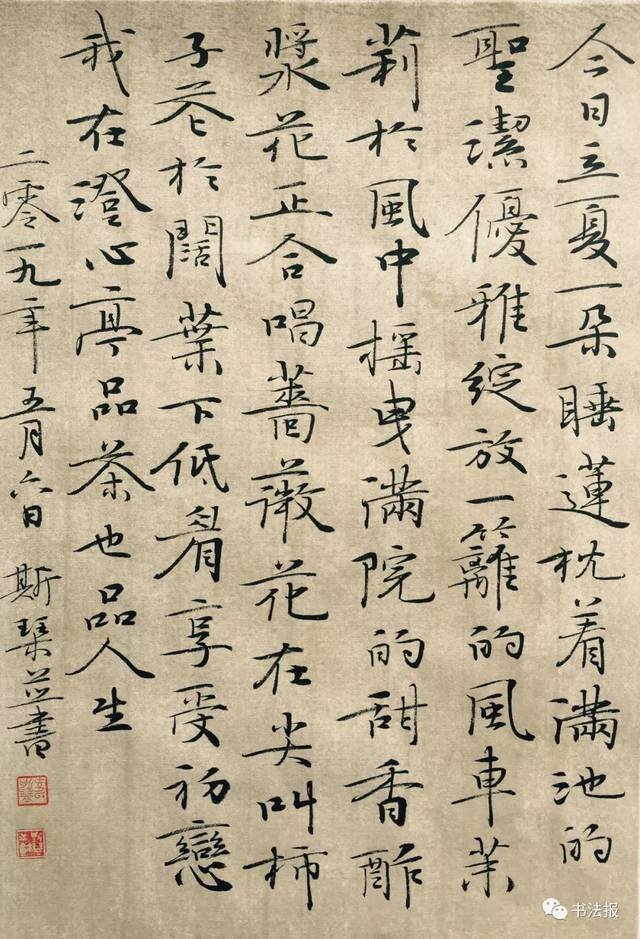 今日立夏一朵睡蓮枕着滿池的
聖潔優雅綻放一籬的風車茉
莉於風中摇曳滿院的甜香酢
漿花正合唱薔薇花在尖叫柿
子花於闊葉下低眉享受初戀
我在澄心亭品茶也品人生
二零一九年五月六日 斯琹並書
书法报